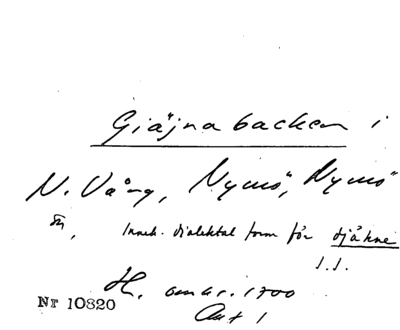 Giäjna backen i
N. Vång, Nymö, Nymö
sn, Inneh. dialektal form för djäkne
J.J.
H. omkr. 1700
Akt 1
Nr 10820